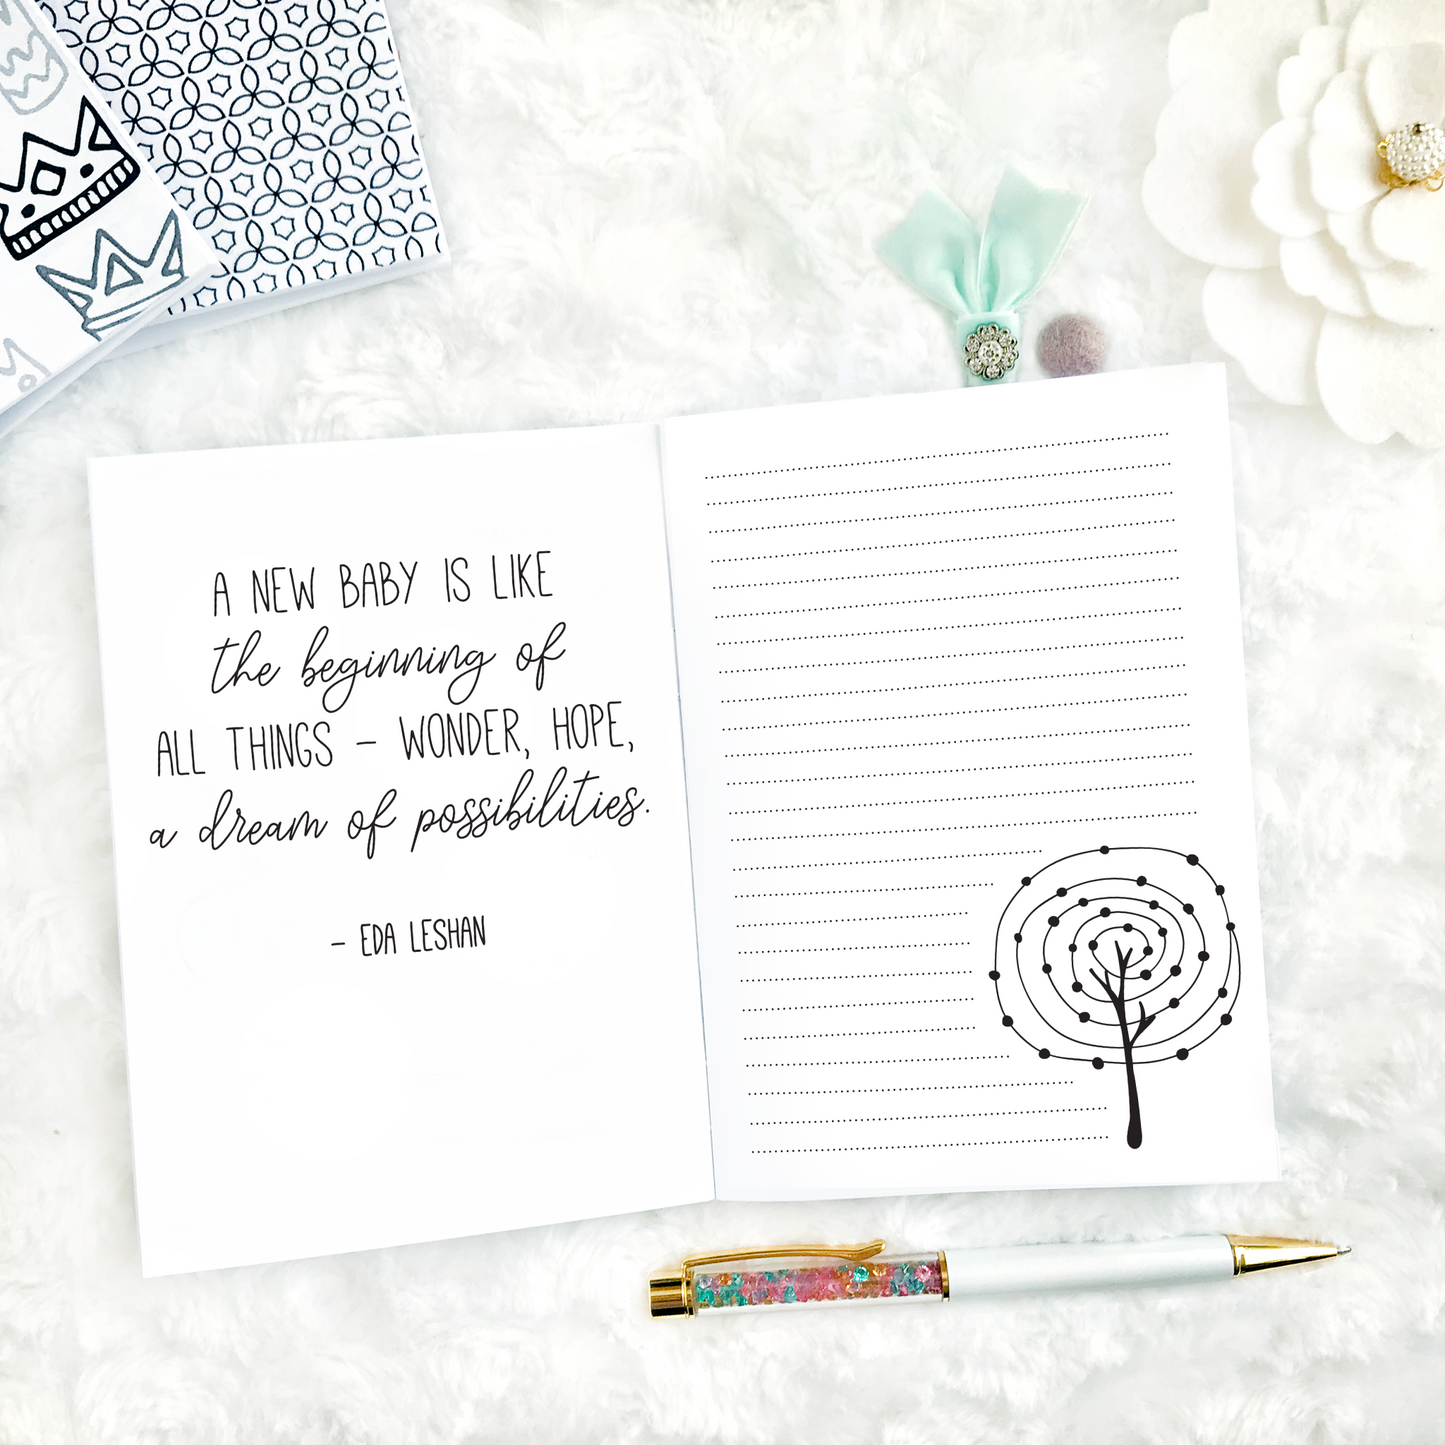 A NEW BABY IS LIKE
the beginning of
ALL THINGS – WONDER, HOPE,
a dream of possibilities.
– EDA LESHAN